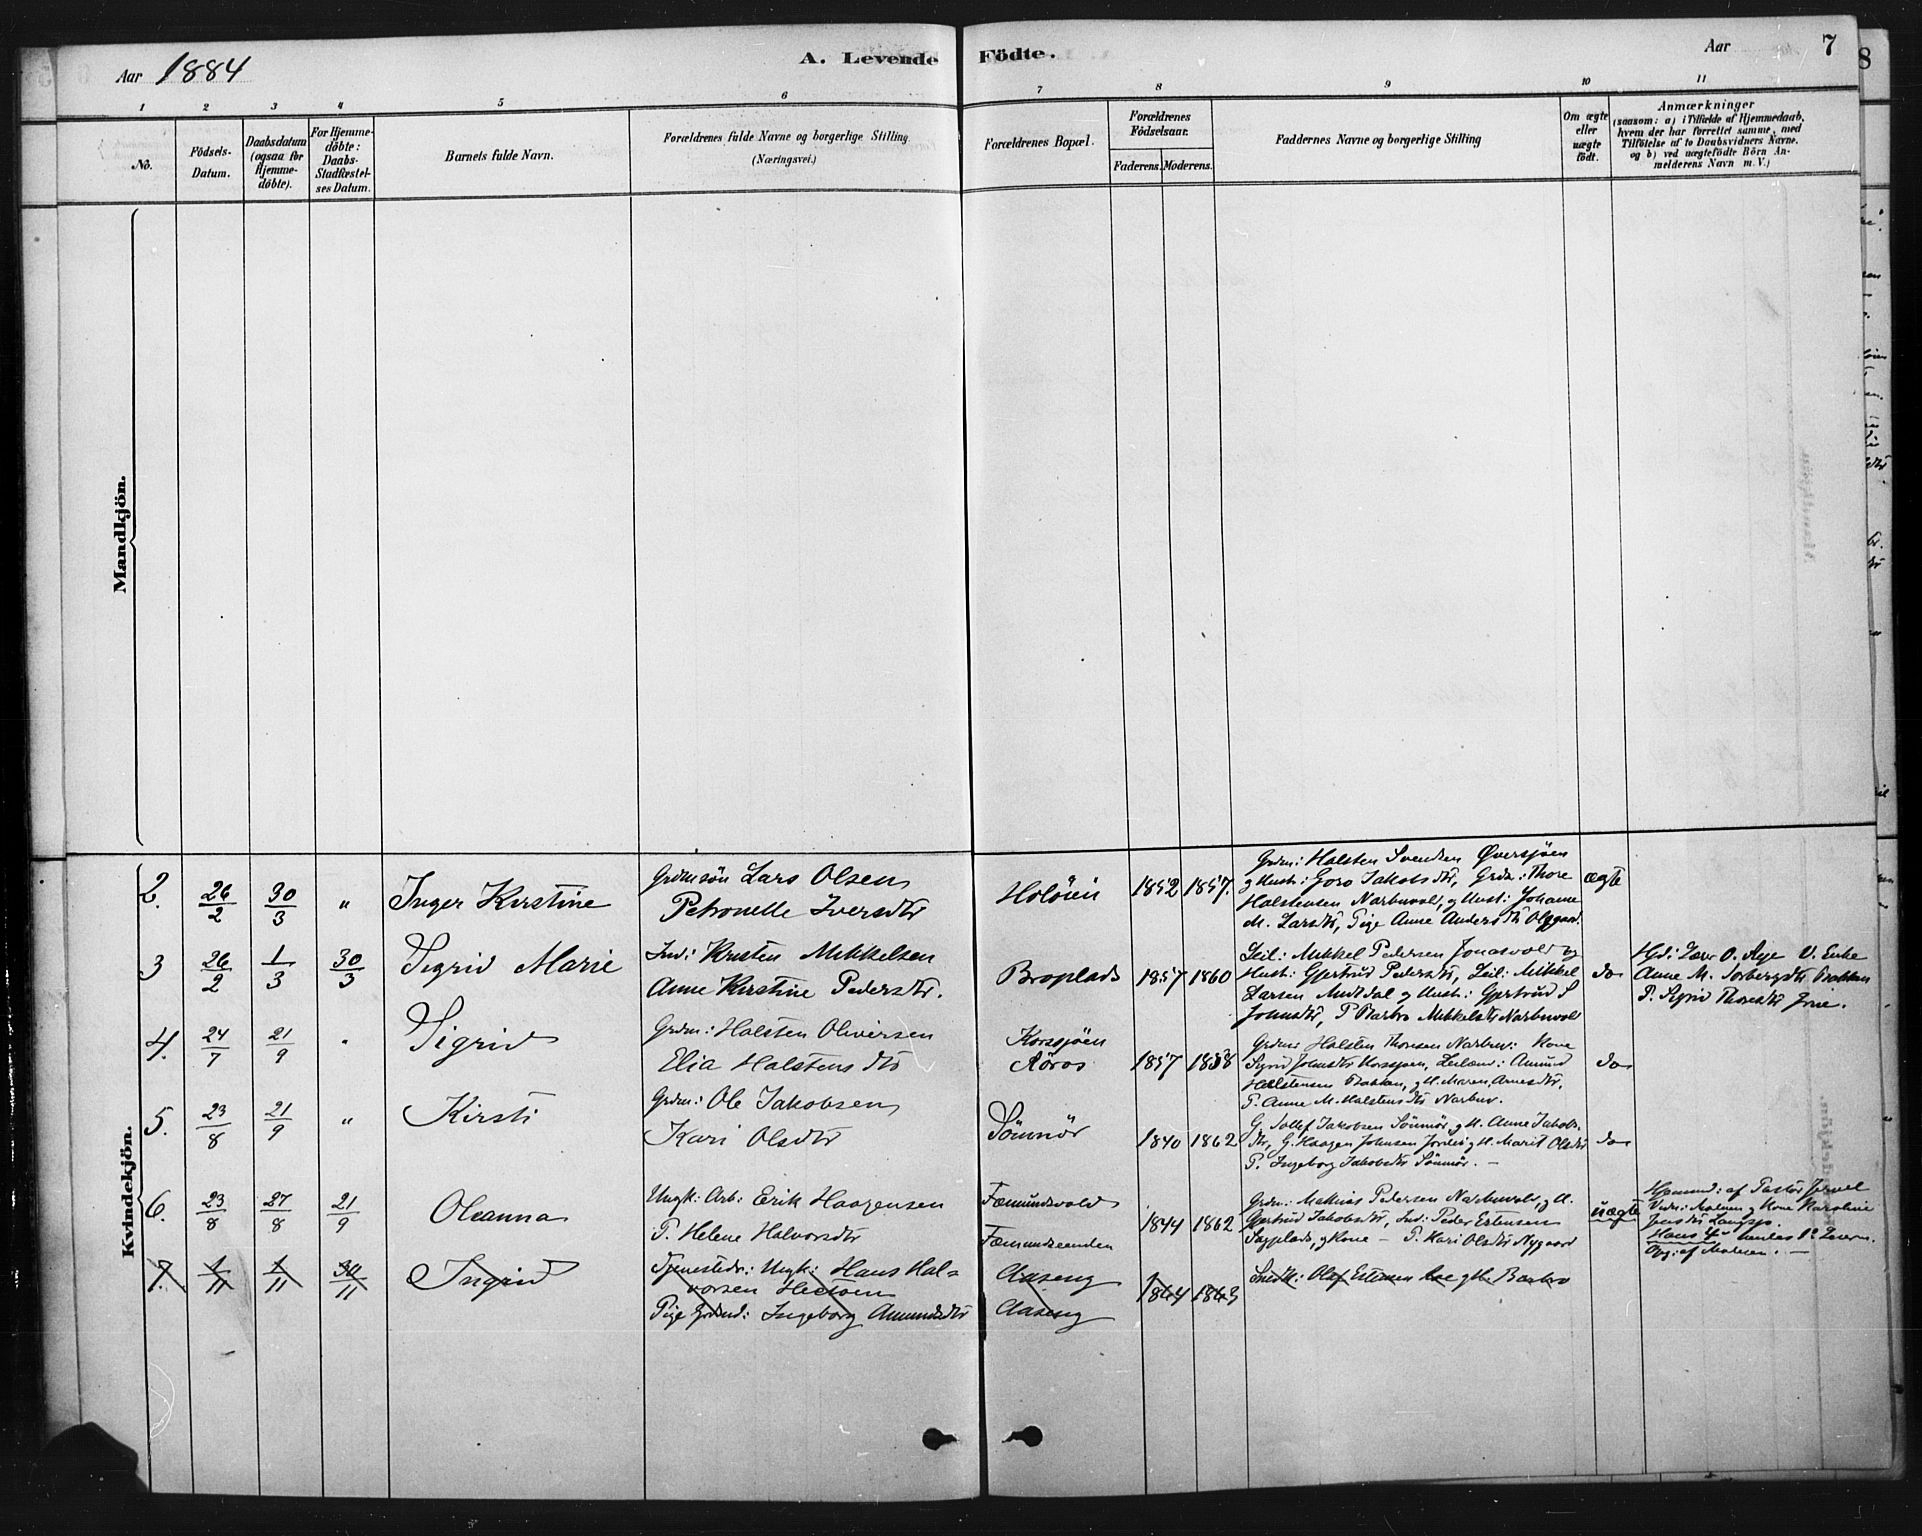 Aar 1884
A. Levende
Födte.
Aar
7
8
1
2
3
4
5
6
7
8
9
10
11
No.
Födsels-
Datum.
Daabsdatum
(ogsaa for
Hjemme-
döbte).
For Hjemme-
döbte:
Daabs-
Stadfæstel-
ses Datum.
Barnets fulde Navn.
Forældrenes fulde Navne og borgerlige Stilling
(Næringsvei.)
Forældrenes Bopæl.
Forældrenes
Födselsaar.
Faderens. Moderens.
Faddernes Navne og borgerlige Stilling
Om ægte
eller
uægte
födt.
Anmærkninger
(saasom: a) i Tilfælde af Hjemmedaab,
hvem der har forrettet samme, med
Tilföielse af to Daabsvidners Navne,
og b) ved uægtefödte Börn An-
melderens Navn m. V.)
Mandkjön.
Kvindekjön.
2. 26/2 30/3 " Inger Kirstine
Grdmsøn Lars Olsen
Petronelle Iversdtr
Holöien
1852 1857.
Grdm: Halsten Svendsen Øversjøen
g Hust: Goro Jakobsdtr, Grdm: Thore
Halstensen Narbuvol, g Hust: Johanne
M. Larsdtr, Pige Anne Andersdtr
ægte
3 26/2 1/3 30/3 Sigrid Marie
Ind: Kristen Mikkelsen
Anne Kirstine Pedersdtr.
Broplads
1857 1860
Leil: Mikkel Pedersen Jonasvold og
Hust: Gjertrud Pedersdtr, Leil: Mikkel
Larsen Midtdal g Hust: Gjertrud S
Johnsdtr, P Barbro Mikkelsdtr Narbuvol
do
Anne M.
4. 24/7 21/9 " Sigrid
Grdm: Halsten Oliversen
Elia Halstensdtr
Korssjøen
Røros
1857 1858
Grdm: Halsten Thoresen Narbuv: Kone
Sigrid Johnsdtr Korssjøen, Leilænd: Amund
Halstensen Bakken, g H. Maren Arnesdtr,
P. Anne M. Halstensdtr Narbuv.
do
5. 23/8 21/9 " Kirsti
Grdm: Ole Jakobsen
Kari Olsdtr
Sömnör
1840 1862
G. Tollef Jakobsen Sömnör, g H. Anne Jakobs-
dtr, G. Haagen Johnsen g H. Marit Olsdtr
P. Ingeborg Jakobsdtr Sömnör. —
do
6. 23/8 27/8 21/9 Oleanna
Ungk: Arb: Erik Haagensen
P. Helene Halvorsdtr
Fæmundsvold
Fæmundseenden
1844 1862
Grdm: Mathias Pedersen Narbuvol, g H.
Gjertrud Jakobsdtr, Ind: Peder Estensen
Sagplads, g Kone — P. Kari Olsdtr Nygaard
uægte
af Pastor
g Kone Karoline
Hans
af
7. 1/11 1/11 30/11 Ingrid
Tjenestedr: Ungk: Hans Hal-
vorsen
Pige Grdmd: Ingeborg Amundsdtr
Aaseng
Aaseng
1864 1863
Snedk: Olaf Estensen g H. Barbro